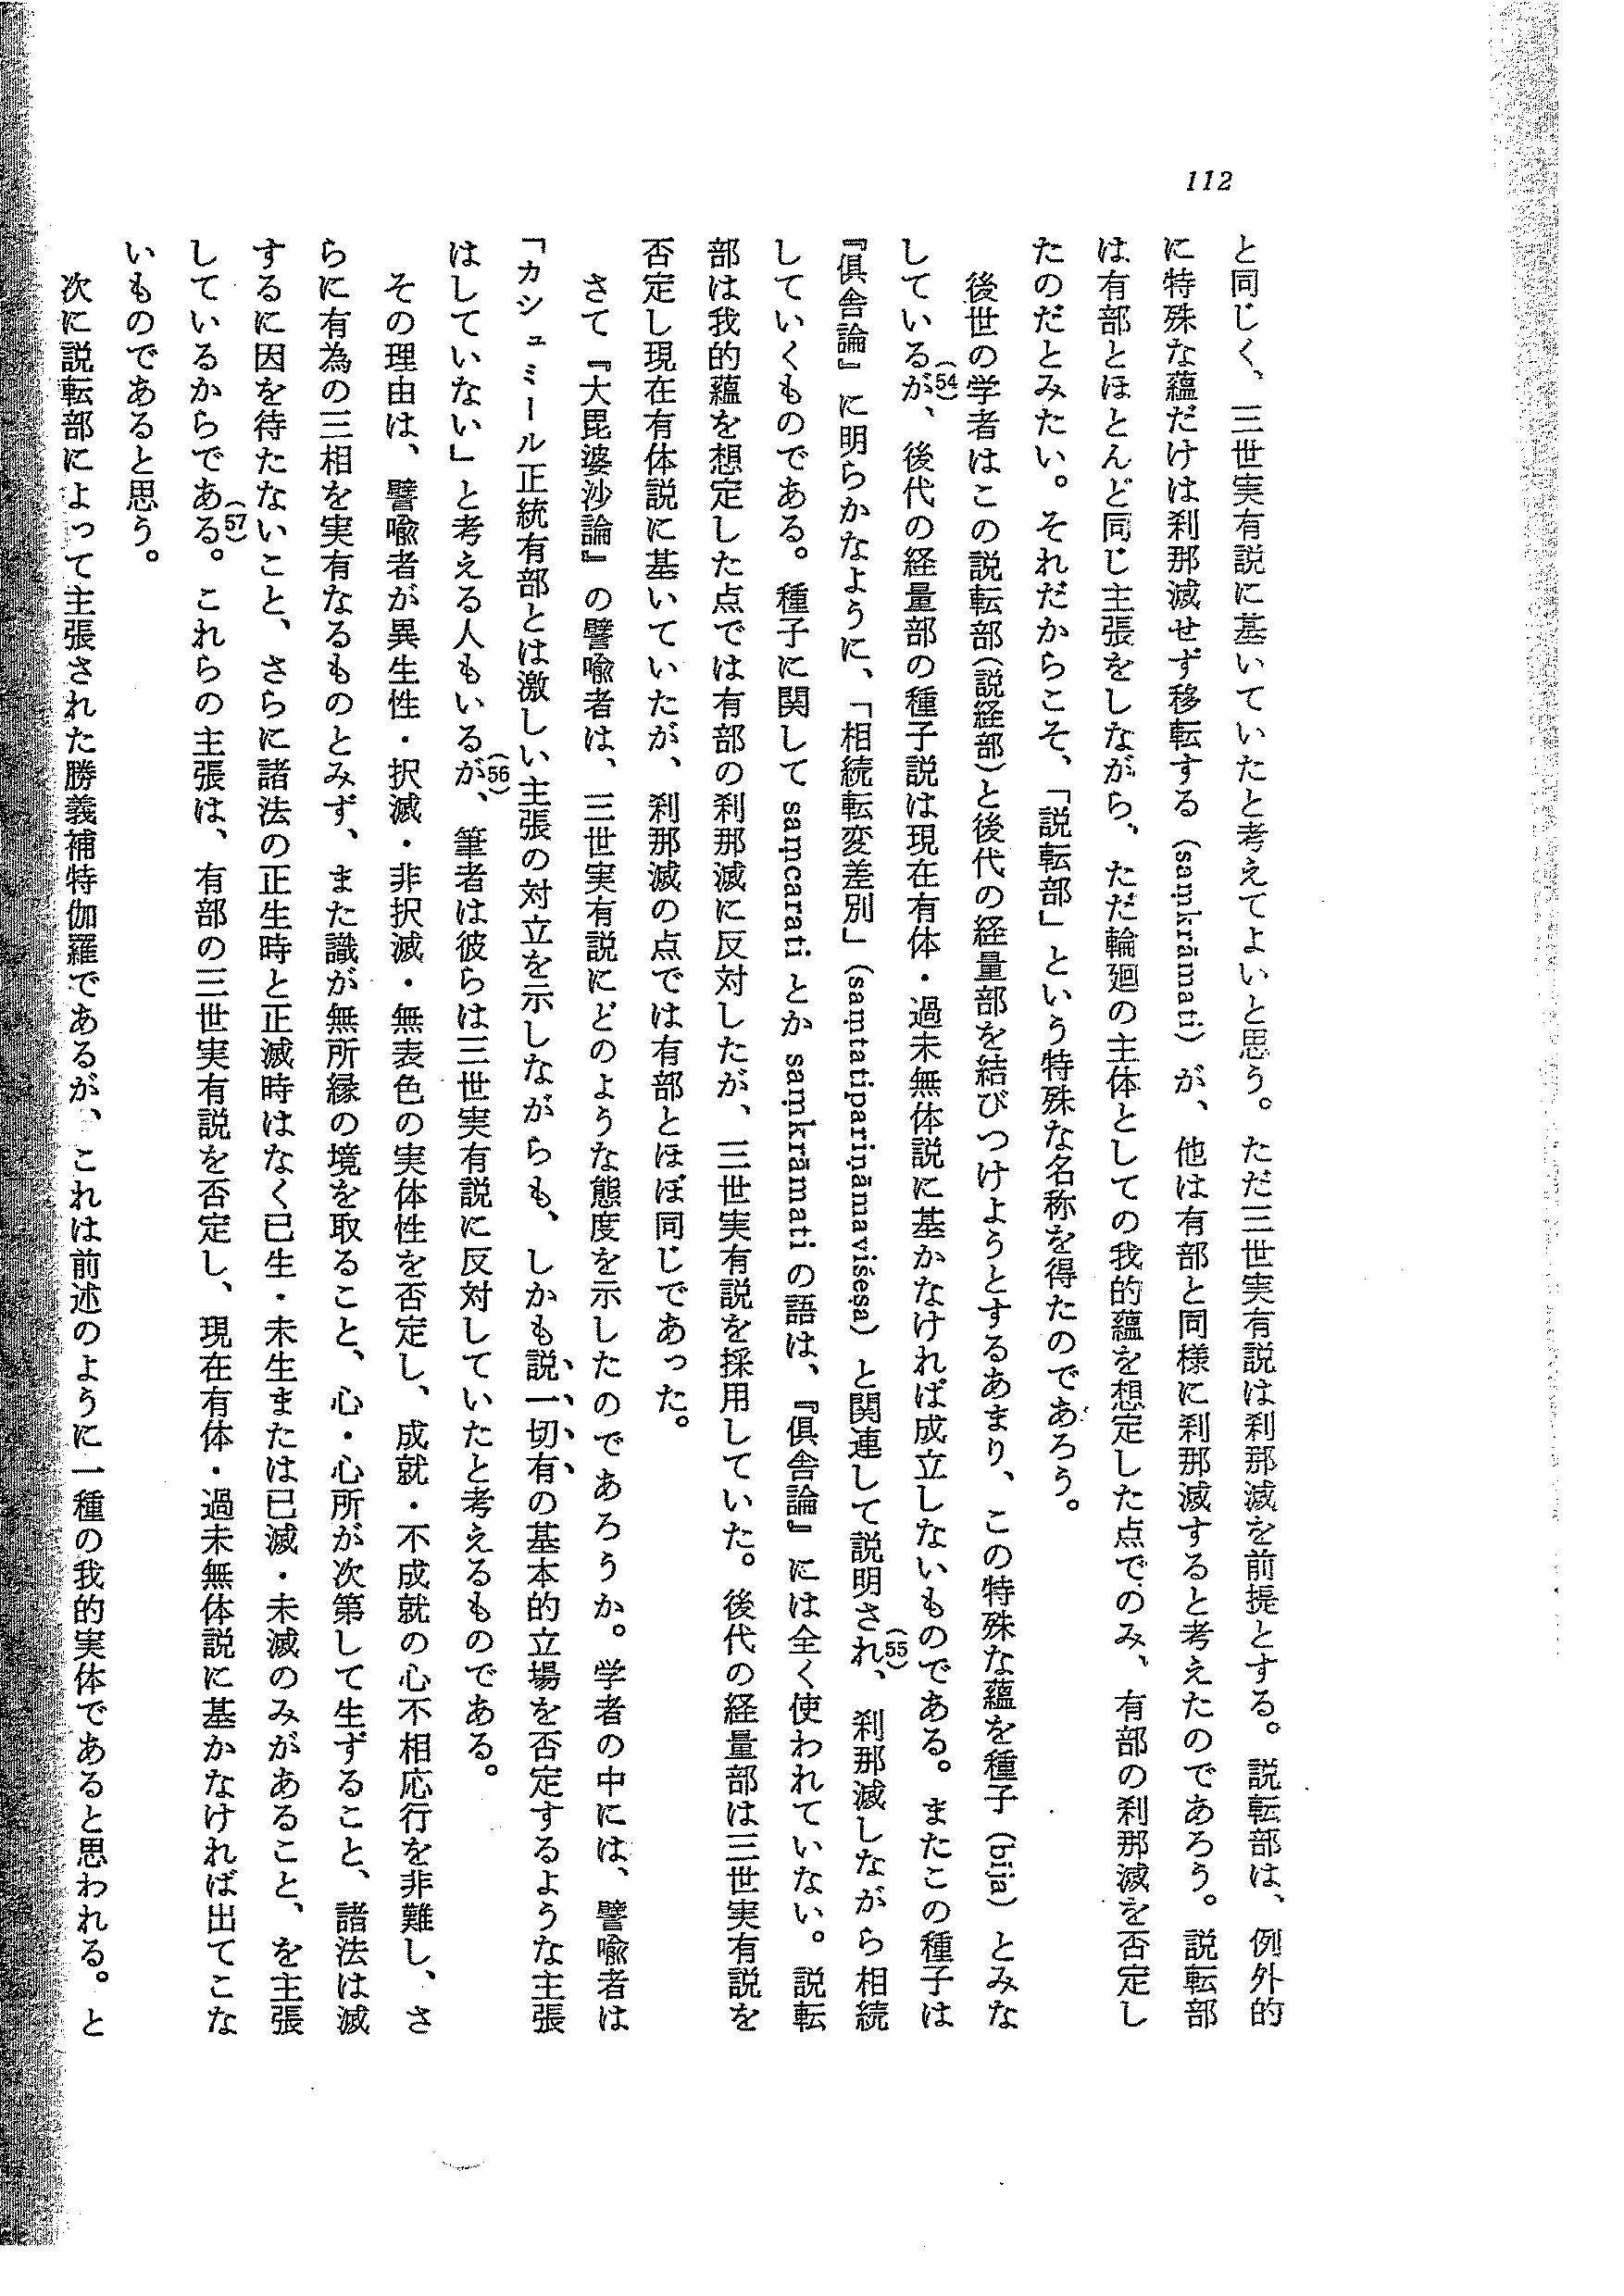 112
と同じく、三世実有説に基いていたと考えてよいと思う。ただ三世実有説は刹那滅を前提とする。説転部は、例外的
に特殊な蘊だけは刹那滅せず移転する（saṃkrāmati）が、他は有部と同様に刹那滅すると考えたのであろう。説転部
は有部とほとんど同じ主張をしながら、ただ輪廻の主体としての我的蘊を想定した点でのみ、有部の刹那滅を否定し
たのだとみたい。それだからこそ、「説転部」という特殊な名称を得たのであろう。
後世の学者はこの説転部（説経部）と後代の経量部を結びつけようとするあまり、この特殊な蘊を種子（bīja）とみな
しているが(54)、後代の経量部の種子説は現在有体・過未無体説に基かなければ成立しないものである。またこの種子は
『倶舎論』に明らかなように、「相続転変差別」（saṃtatipariṇāmaviśeṣa）と関連して説明され(55)、刹那滅しながら相続
していくものである。種子に関して saṃcarati とか saṃkrāmati の語は、『倶舎論』には全く使われていない。説転
部は我的蘊を想定した点では有部の刹那滅に反対したが、三世実有説を採用していた。後代の経量部は三世実有説を
否定し現在有体説に基いていたが、刹那滅の点では有部とほぼ同じであった。
さて『大毘婆沙論』の譬喩者は、三世実有説にどのような態度を示したのであろうか。学者の中には、譬喩者は
「カシュミール正統有部とは激しい主張の対立を示しながらも、しかも説一切有の基本的立場を否定するような主張
はしていない」と考える人もいるが(56)、筆者は彼らは三世実有説に反対していたと考えるものである。
その理由は、譬喩者が異生性・択滅・非択滅・無表色の実体性を否定し、成就・不成就の心不相応行を非難し、さ
らに有為の三相を実有なるものとみず、また識が無所縁の境を取ること、心・心所が次第して生ずること、諸法は滅
するに因を待たないこと、さらに諸法の正生時と正滅時はなく已生・未生または已滅・未滅のみがあること、を主張
しているからである(57)。これらの主張は、有部の三世実有説を否定し、現在有体・過未無体説に基かなければ出てこな
いものであると思う。
次に説転部によって主張された勝義補特伽羅であるが、これは前述のように一種の我的実体であると思われる。と